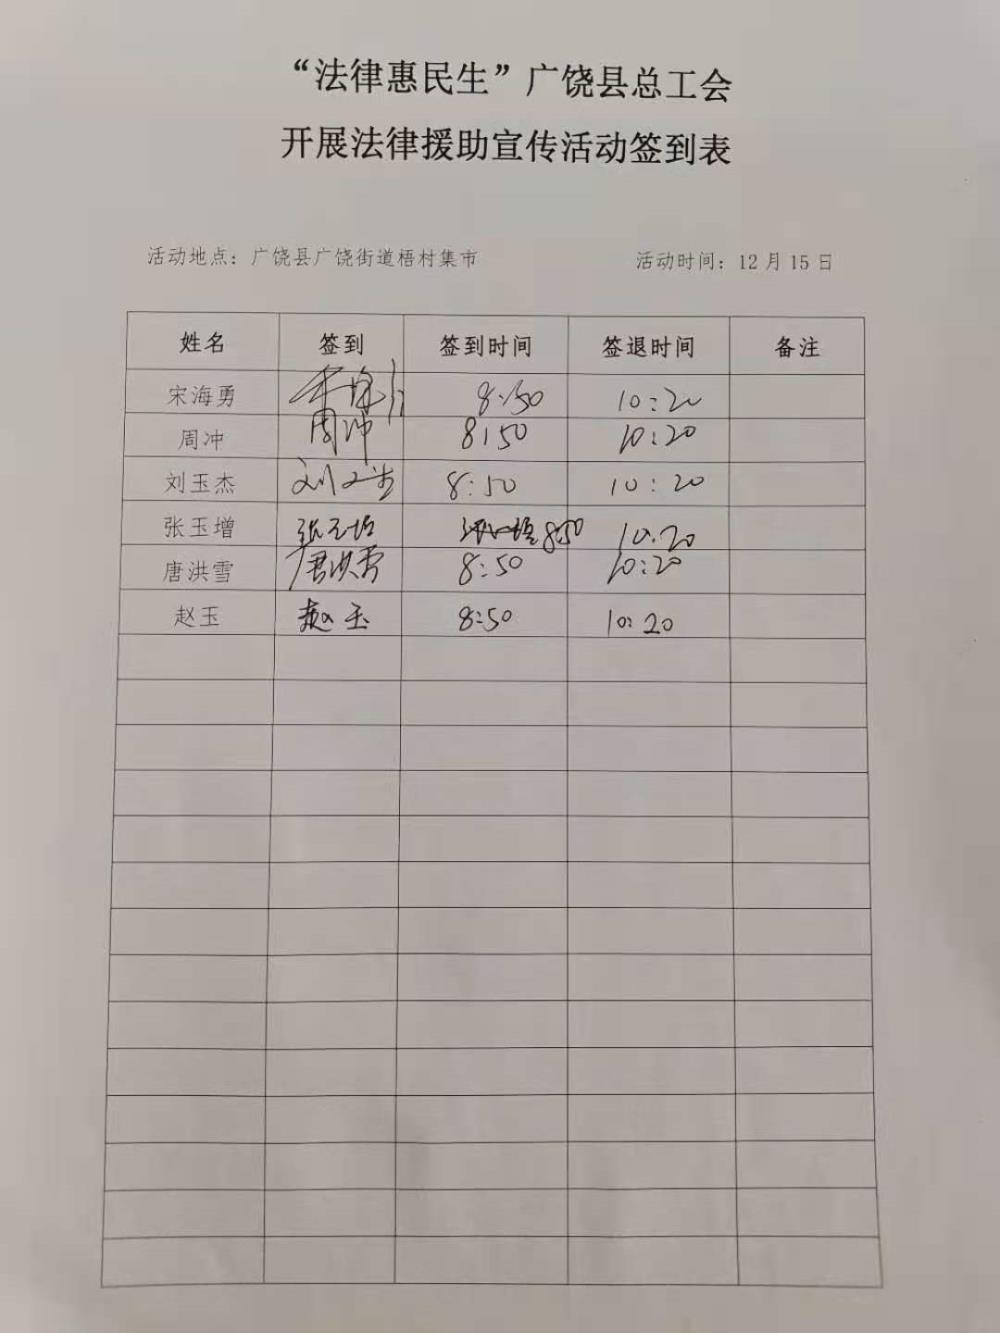 “法律惠民生”广饶县总工会
开展法律援助宣传活动签到表
活动地点：广饶县广饶街道梧村集市 活动时间：12月15日
姓名 签到 签到时间 签退时间 备注
宋海勇 8:50 10:20
周冲 周冲 8:50 10:20
刘玉杰 刘玉杰 8:50 10:20
张玉增 张玉增 8:50 10:20
唐洪雪 唐洪雪 8:50 10:20
赵玉 赵玉 8:50 10:20